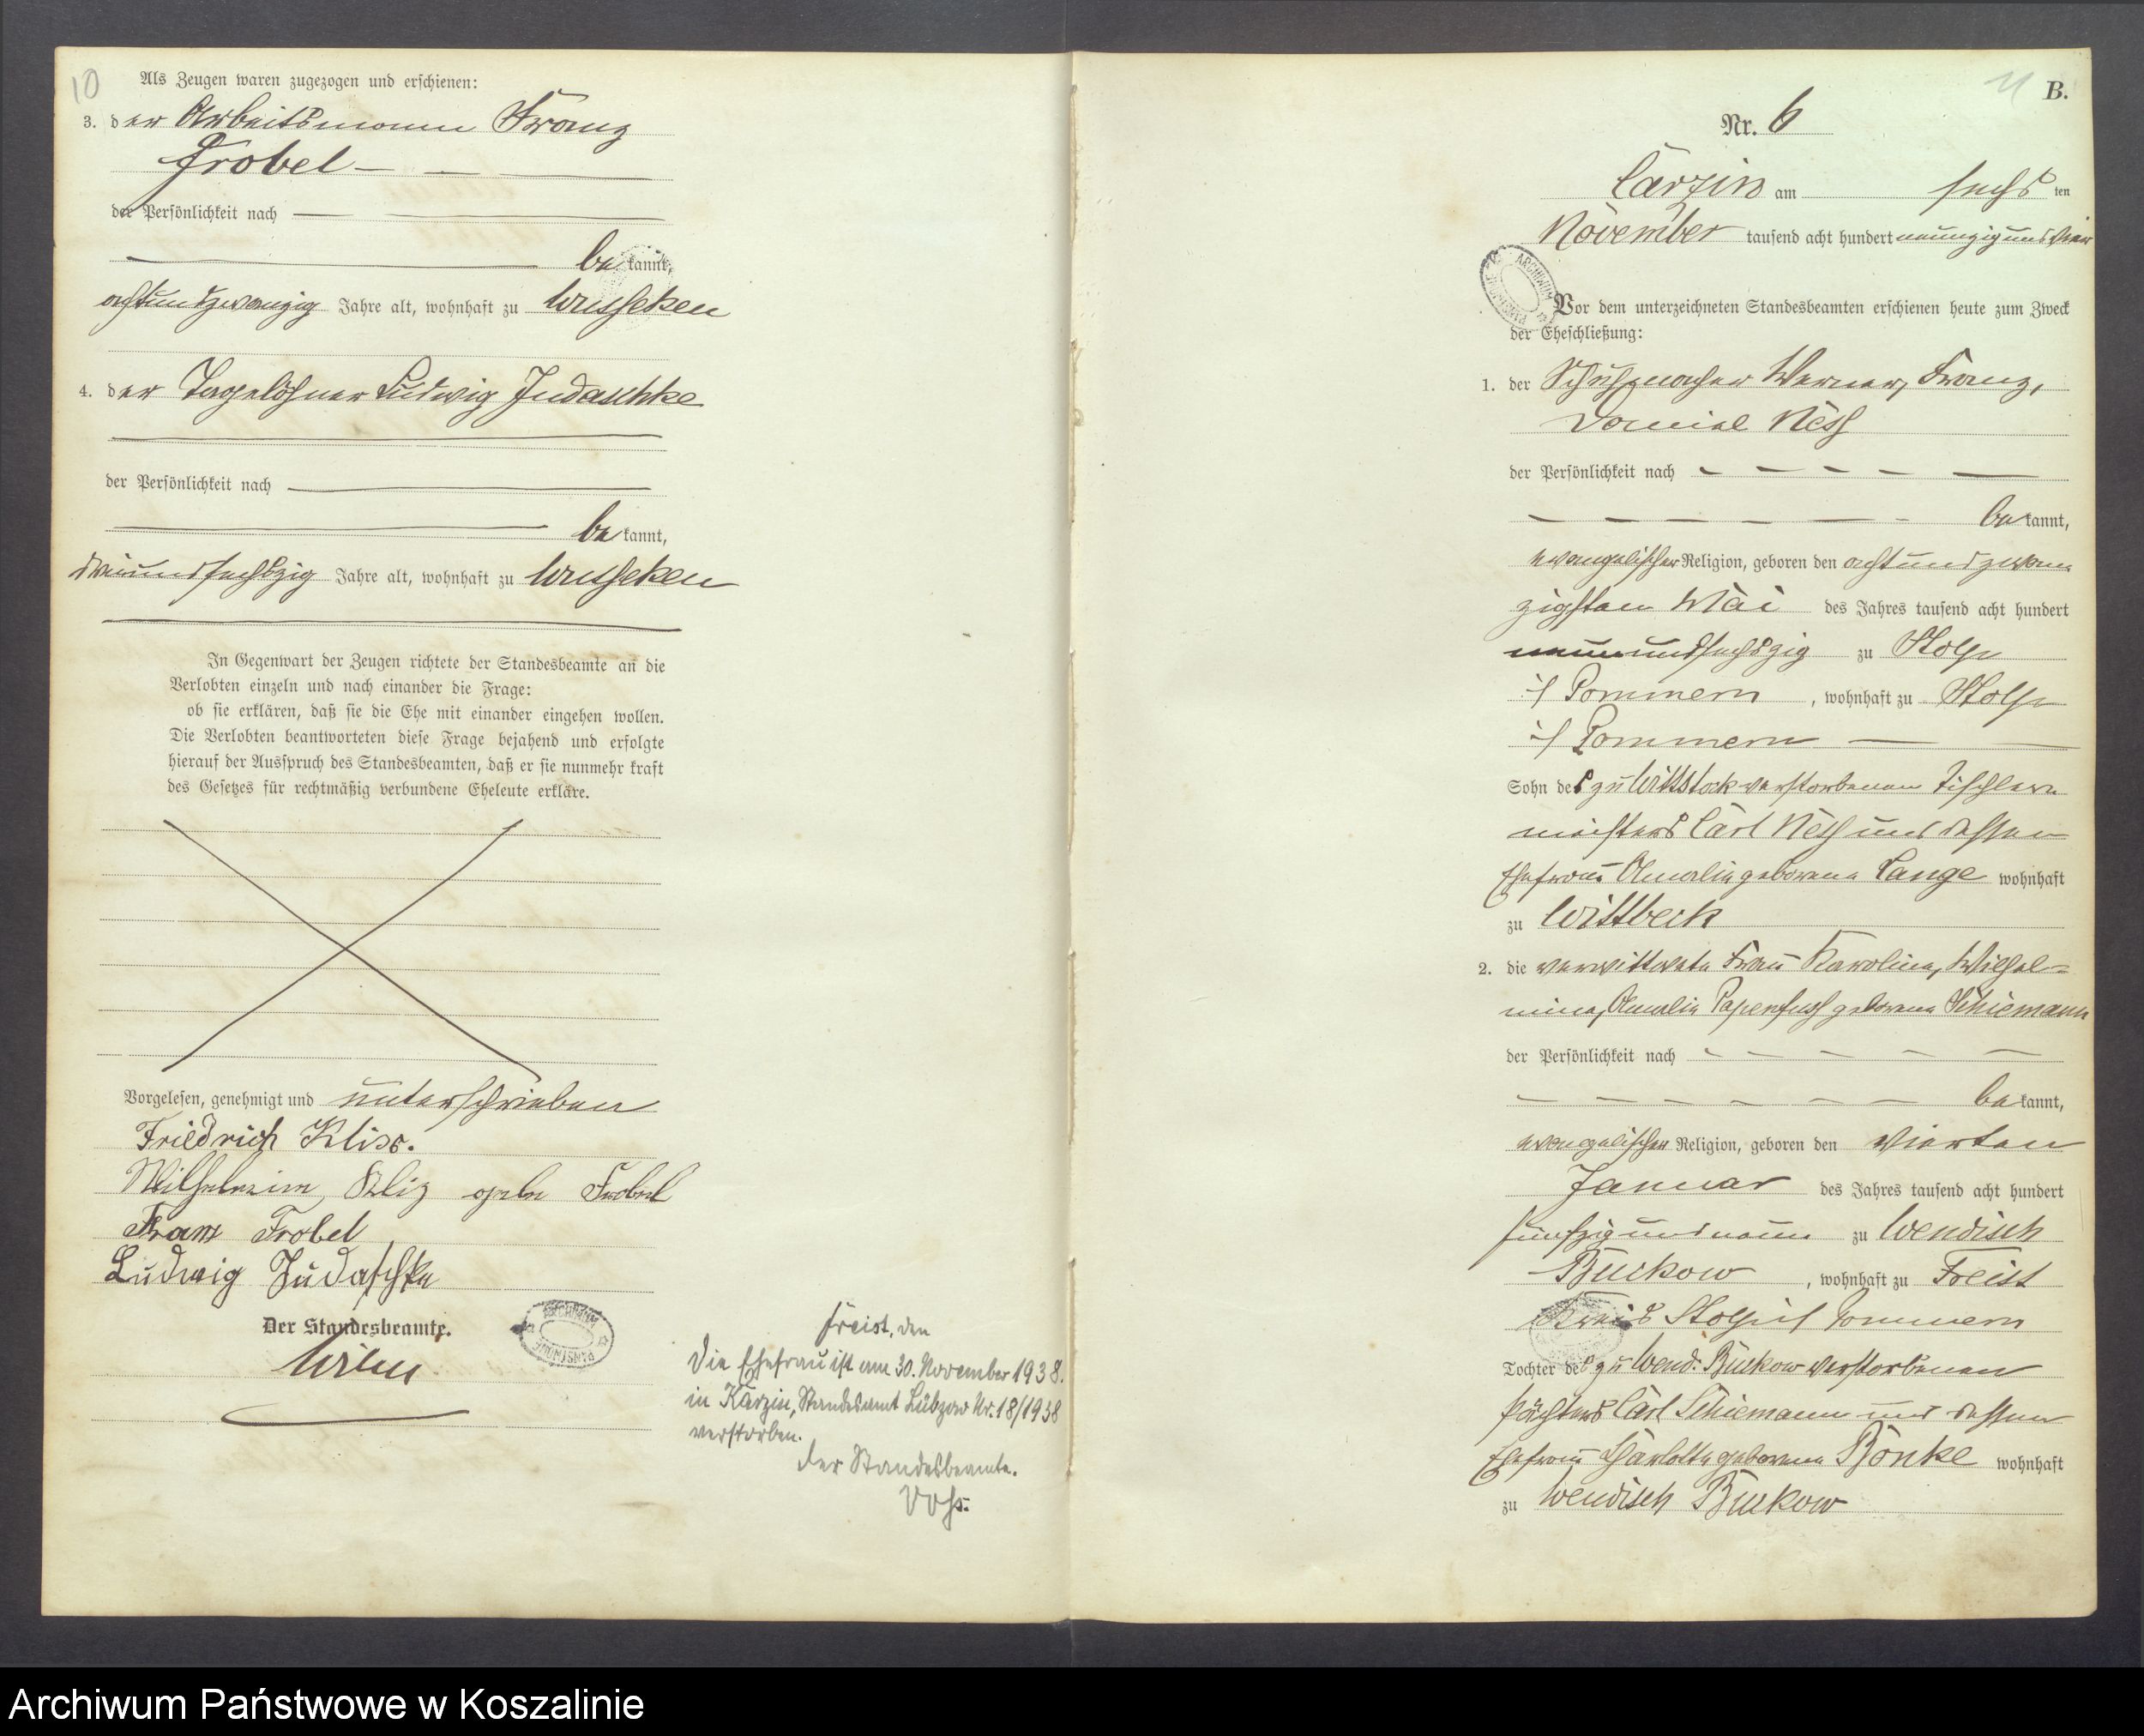 10
Als Zeugen waren zugezogen und erschienen:
3. der Arbeitsmann Franz
Frobel
der Persönlichkeit nach
bekannt,
achtundzwanzig Jahre alt, wohnhaft zu Wusseken
4. der Tagelöhner Ludwig Judaschke
der Persönlichkeit nach
bekannt,
dreiundsechszig Jahre alt, wohnhaft zu Wusseken
In Gegenwart der Zeugen richtete der Standesbeamte an die
Verlobten einzeln und nach einander die Frage:
ob sie erklären, daß sie die Ehe mit einander eingehen wollen.
Die Verlobten beantworteten diese Frage bejahend und erfolgte
hierauf der Ausspruch des Standesbeamten, daß er sie nunmehr kraft
des Gesetzes für rechtmäßig verbundene Eheleute erkläre.
Vorgelesen, genehmigt und unterschrieben
Friedrich Kliss.
Wilhelmine Kliz geb Frobel
Franz Frobel
Ludwig Judaschke
Der Standesbeamte.
Freist, den
Die Ehefrau ist am 30. November 1938.
in Karzin, Standesamt Lübzow Nr. 18/1938
verstorben.
Der Standesbeamte.
11
B.
Nr. 6
Carzin am sechsten
November tausend acht hundert neunzig und vier
Vor dem unterzeichneten Standesbeamten erschienen heute zum Zweck
der Eheschließung:
1. der Schuhmacher Werner, Franz,
Daniel Ness
der Persönlichkeit nach
bekannt,
evangelischer Religion, geboren den achtundzwan
zigsten Mai des Jahres tausend acht hundert
neunundsechszig zu Stolp
i/ Pommern, wohnhaft zu Stolp
i/ Pommern
Sohn des zu Wittstock verstorbenen Tischler
meisters Carl Ness und dessen
Ehefrau Amalie geborene Lange wohnhaft
zu Wittbeck
2. die verwittwete Frau Karoline, Wilhel-
mine, Amalie Papenfuss geborene Schiemann
der Persönlichkeit nach
bekannt,
evangelischer Religion, geboren den vierten
Januar des Jahres tausend acht hundert
fünfzig und neun zu Wendisch
Buckow, wohnhaft zu Freist
Kreis Stolp i/ Pommern
Tochter des zu Wend. Buckow verstorbenen
Pächters Carl Schiemann und dessen
Ehefrau Charlotte geborene Rönke wohnhaft
zu Wendisch Buckow
Archiwum Państwowe w Koszalinie